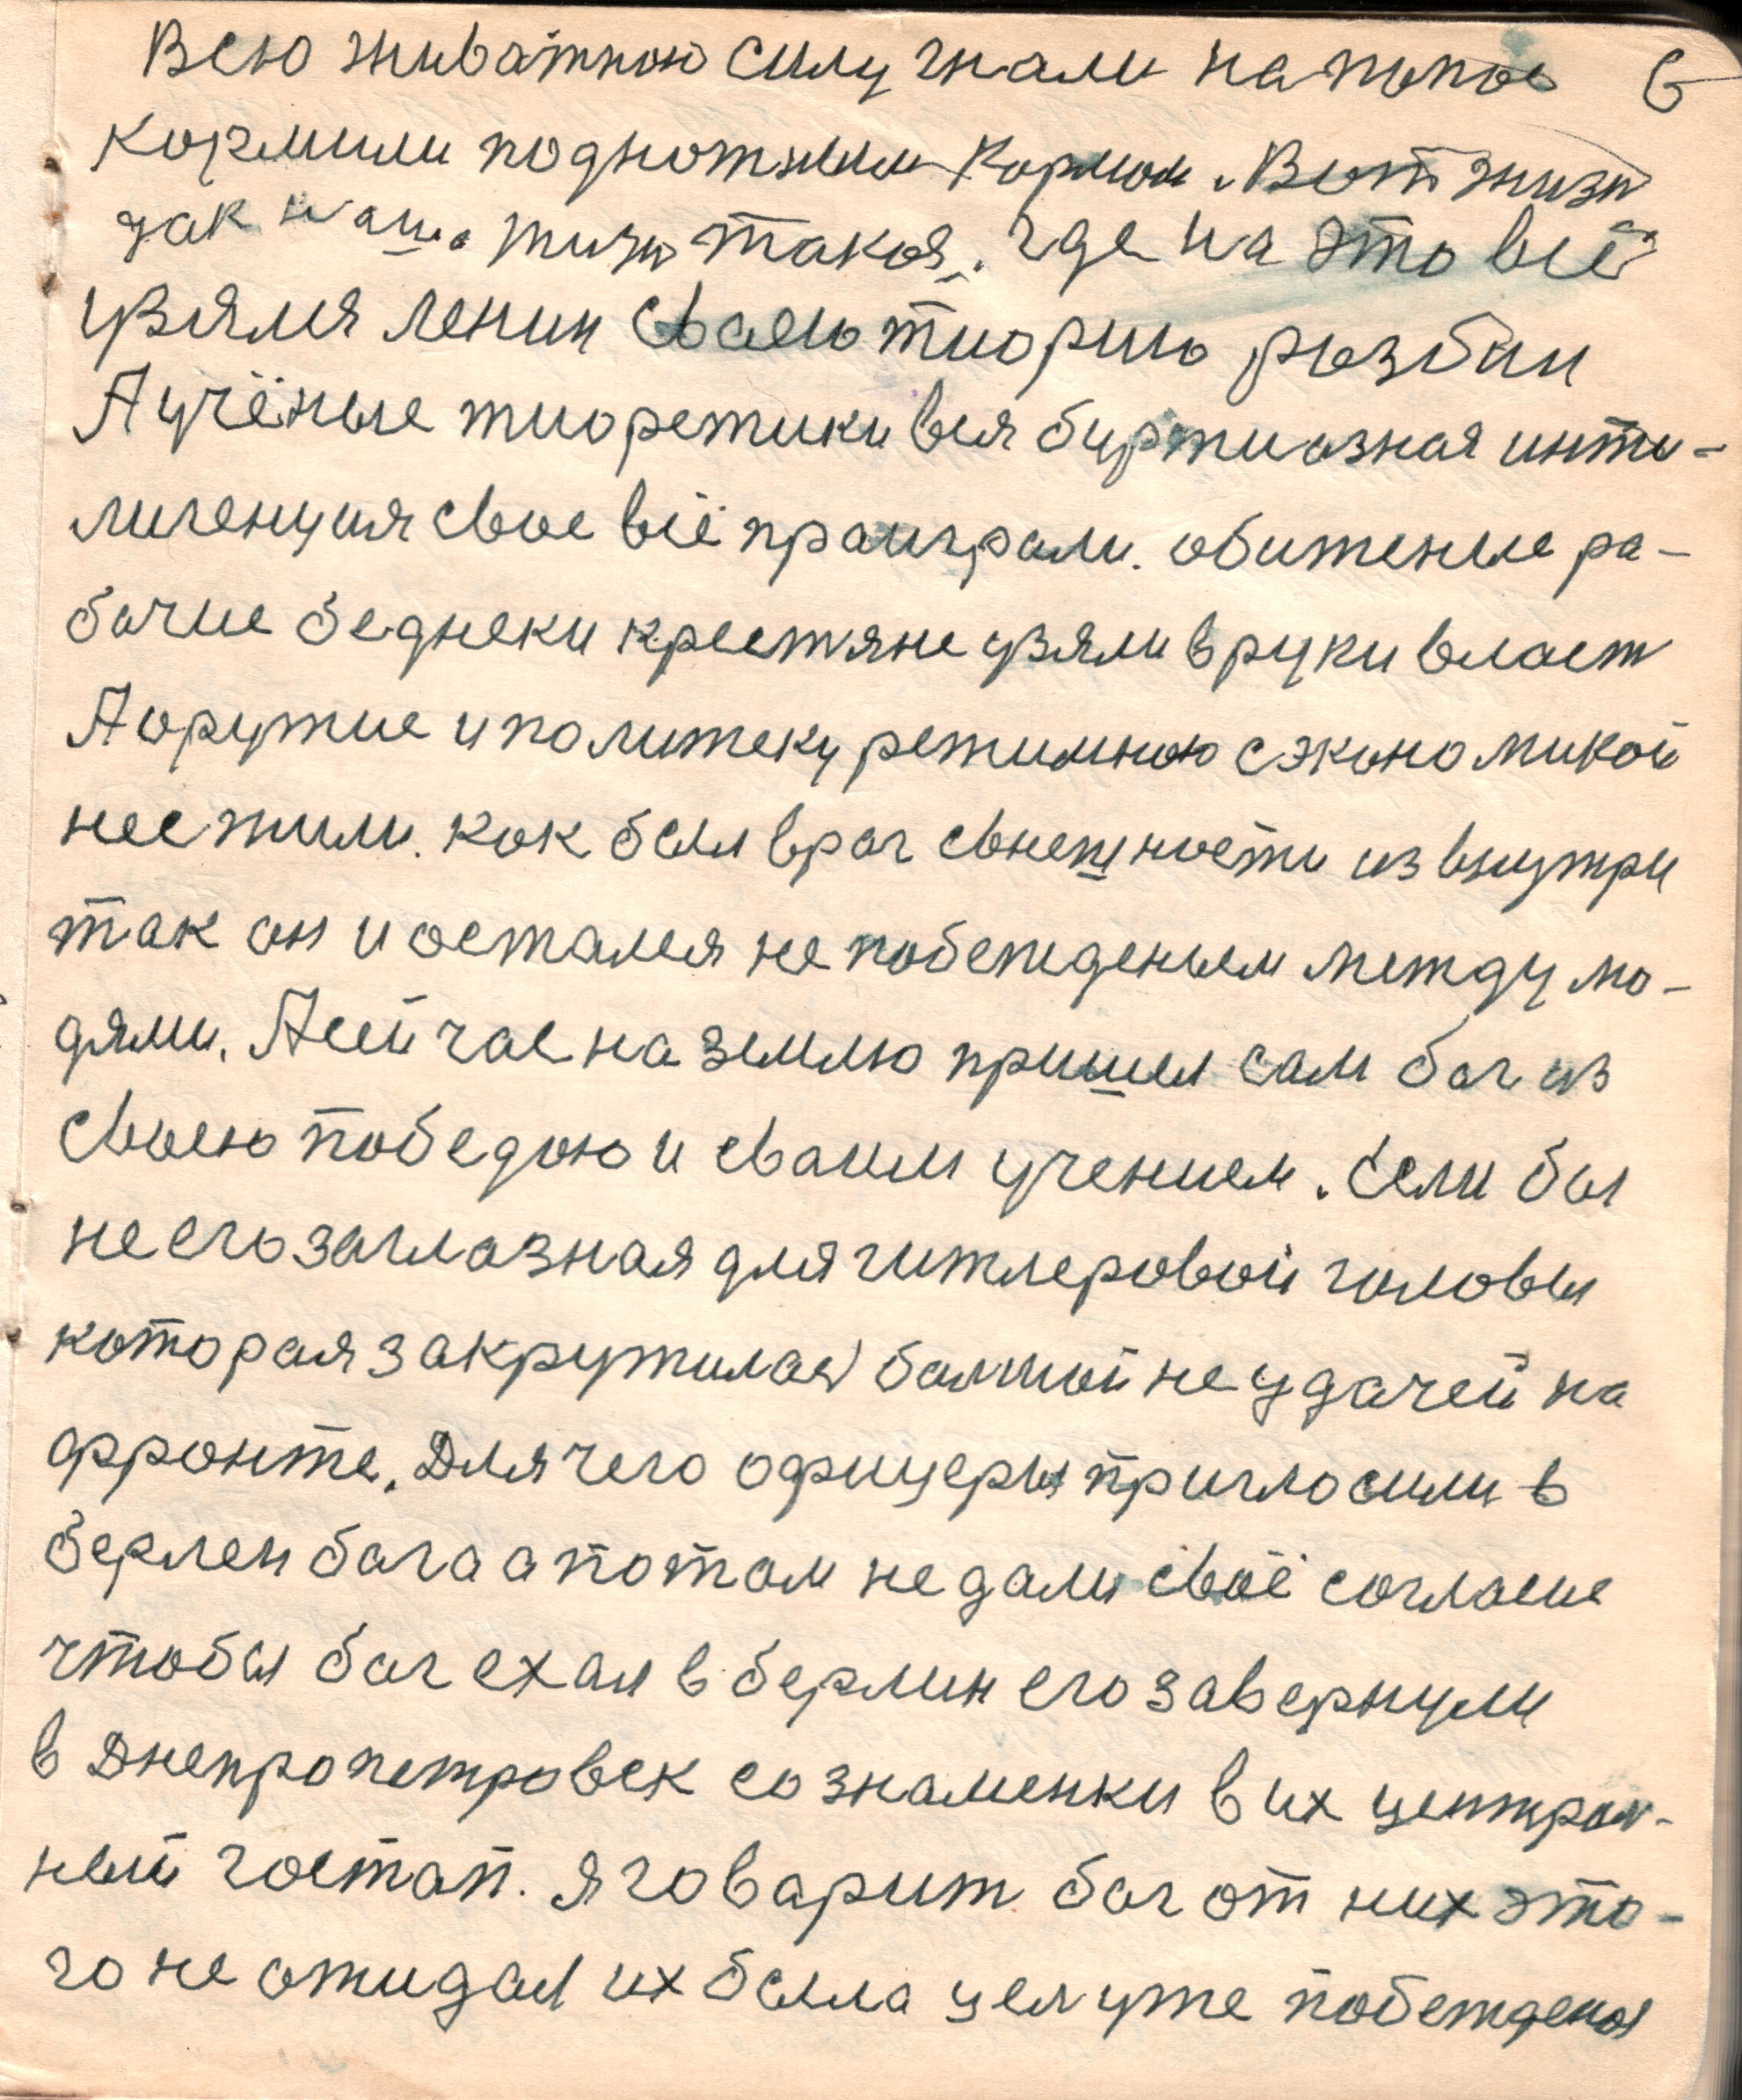 Всю живатною силу гнали на попос 6
кормили подножним кормом. Вот жизн
так наша жизн такоя. где на это всё
узялся ленин сваею тиорию розбил
А учёные тиоретики вся буржиазная инти-
лигенция свое всё праиграли. обиженые ра-
бочие бедняки крестяне узяли в руки власт
А оружие и политеку режимною с экономикой
нес жили. как был враг свнешности из внутри
так он и остался не побежденым между лю-
дями. А сейчас на землю пришел сам бог из
своею победою и сваим учением. Если бы
не его заглазная для гитлеровой головы
которая закружилас балшой не удачей на
фронте. Для чего офицеры пригласили в
берлен бага а потом не дали своё согласие
чтобы бог ехал в берлин его завернули
в Днепропетровск со знаменки в их централ-
ный гостап. я говарит бог от них это-
го не ожидал их была цел уже побеждена